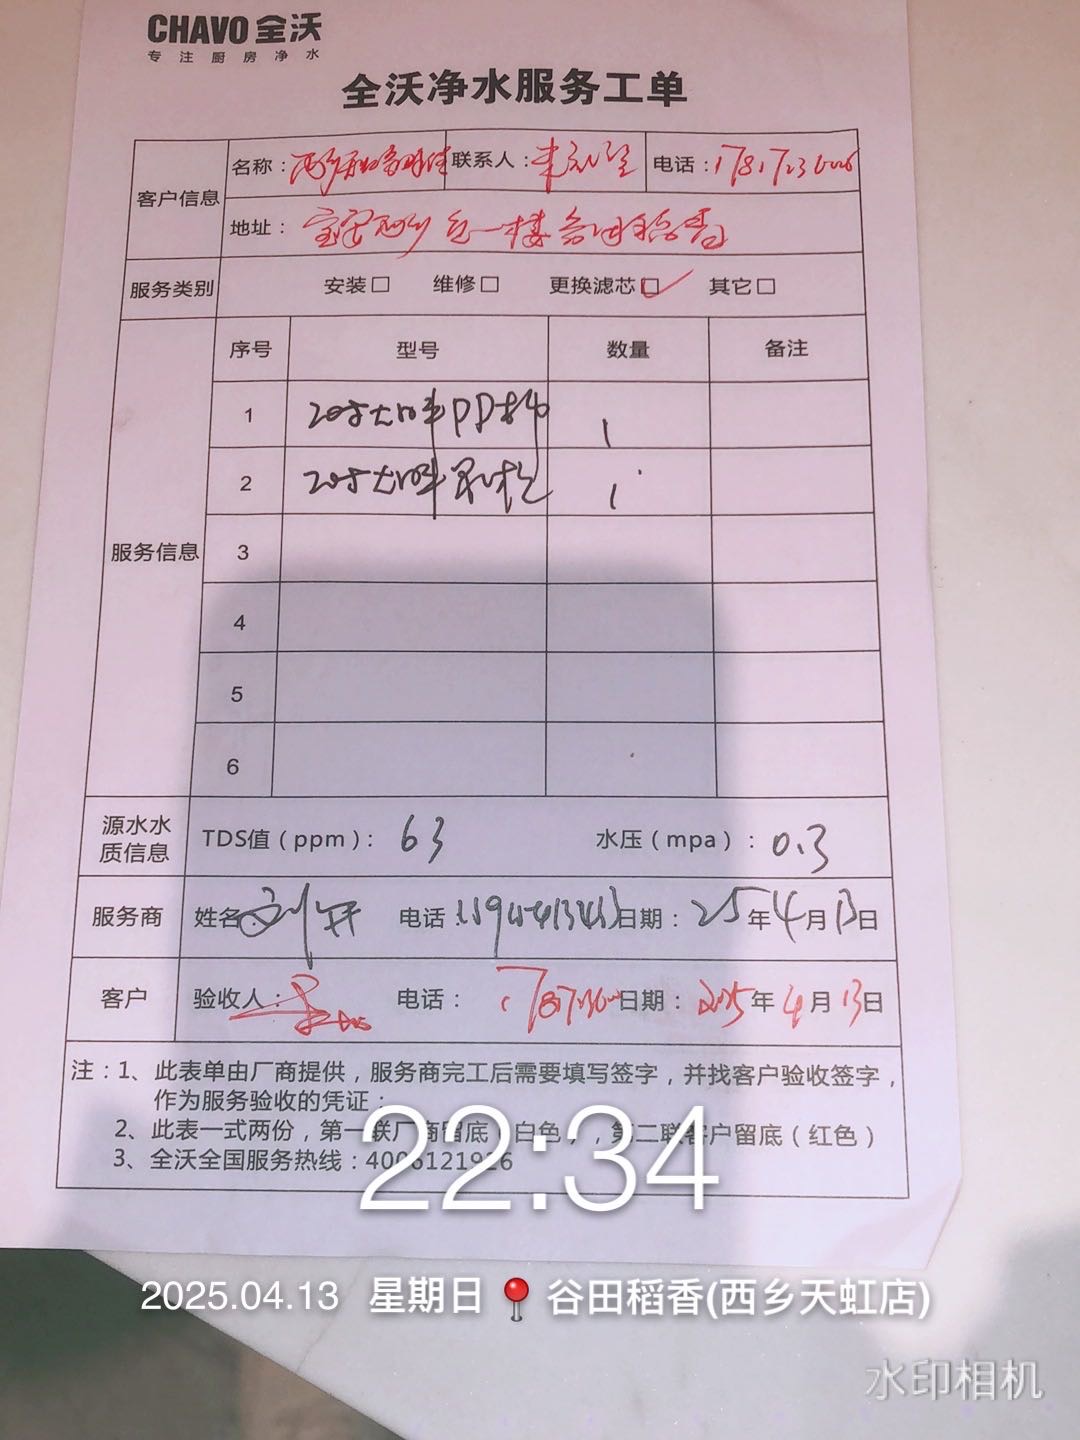 CHAVO 全沃
专注厨房净水
全沃净水服务工单
客户信息 名称： 联系人： 电话：
地址： 一楼谷田稻香
服务类别 安装□ 维修□ 更换滤芯☑ 其它□
服务信息 序号 型号 数量 备注
1 20寸大胖PP棉 1
2 20寸大胖 1
3
4
5
6
源水水质信息 TDS值（ppm）：63 水压（mpa）：0.3
服务商 姓名： 电话： 日期：25年4月13日
客户 验收人： 电话： 日期：2025年4月13日
注：1、此表单由厂商提供，服务商完工后需要填写签字，并找客户验收签字，
作为服务验收的凭证；
2、此表一式两份，第一联厂商留底（白色），第二联客户留底（红色）
3、全沃全国服务热线：4006121926
22:34
2025.04.13 星期日 谷田稻香(西乡天虹店)
水印相机